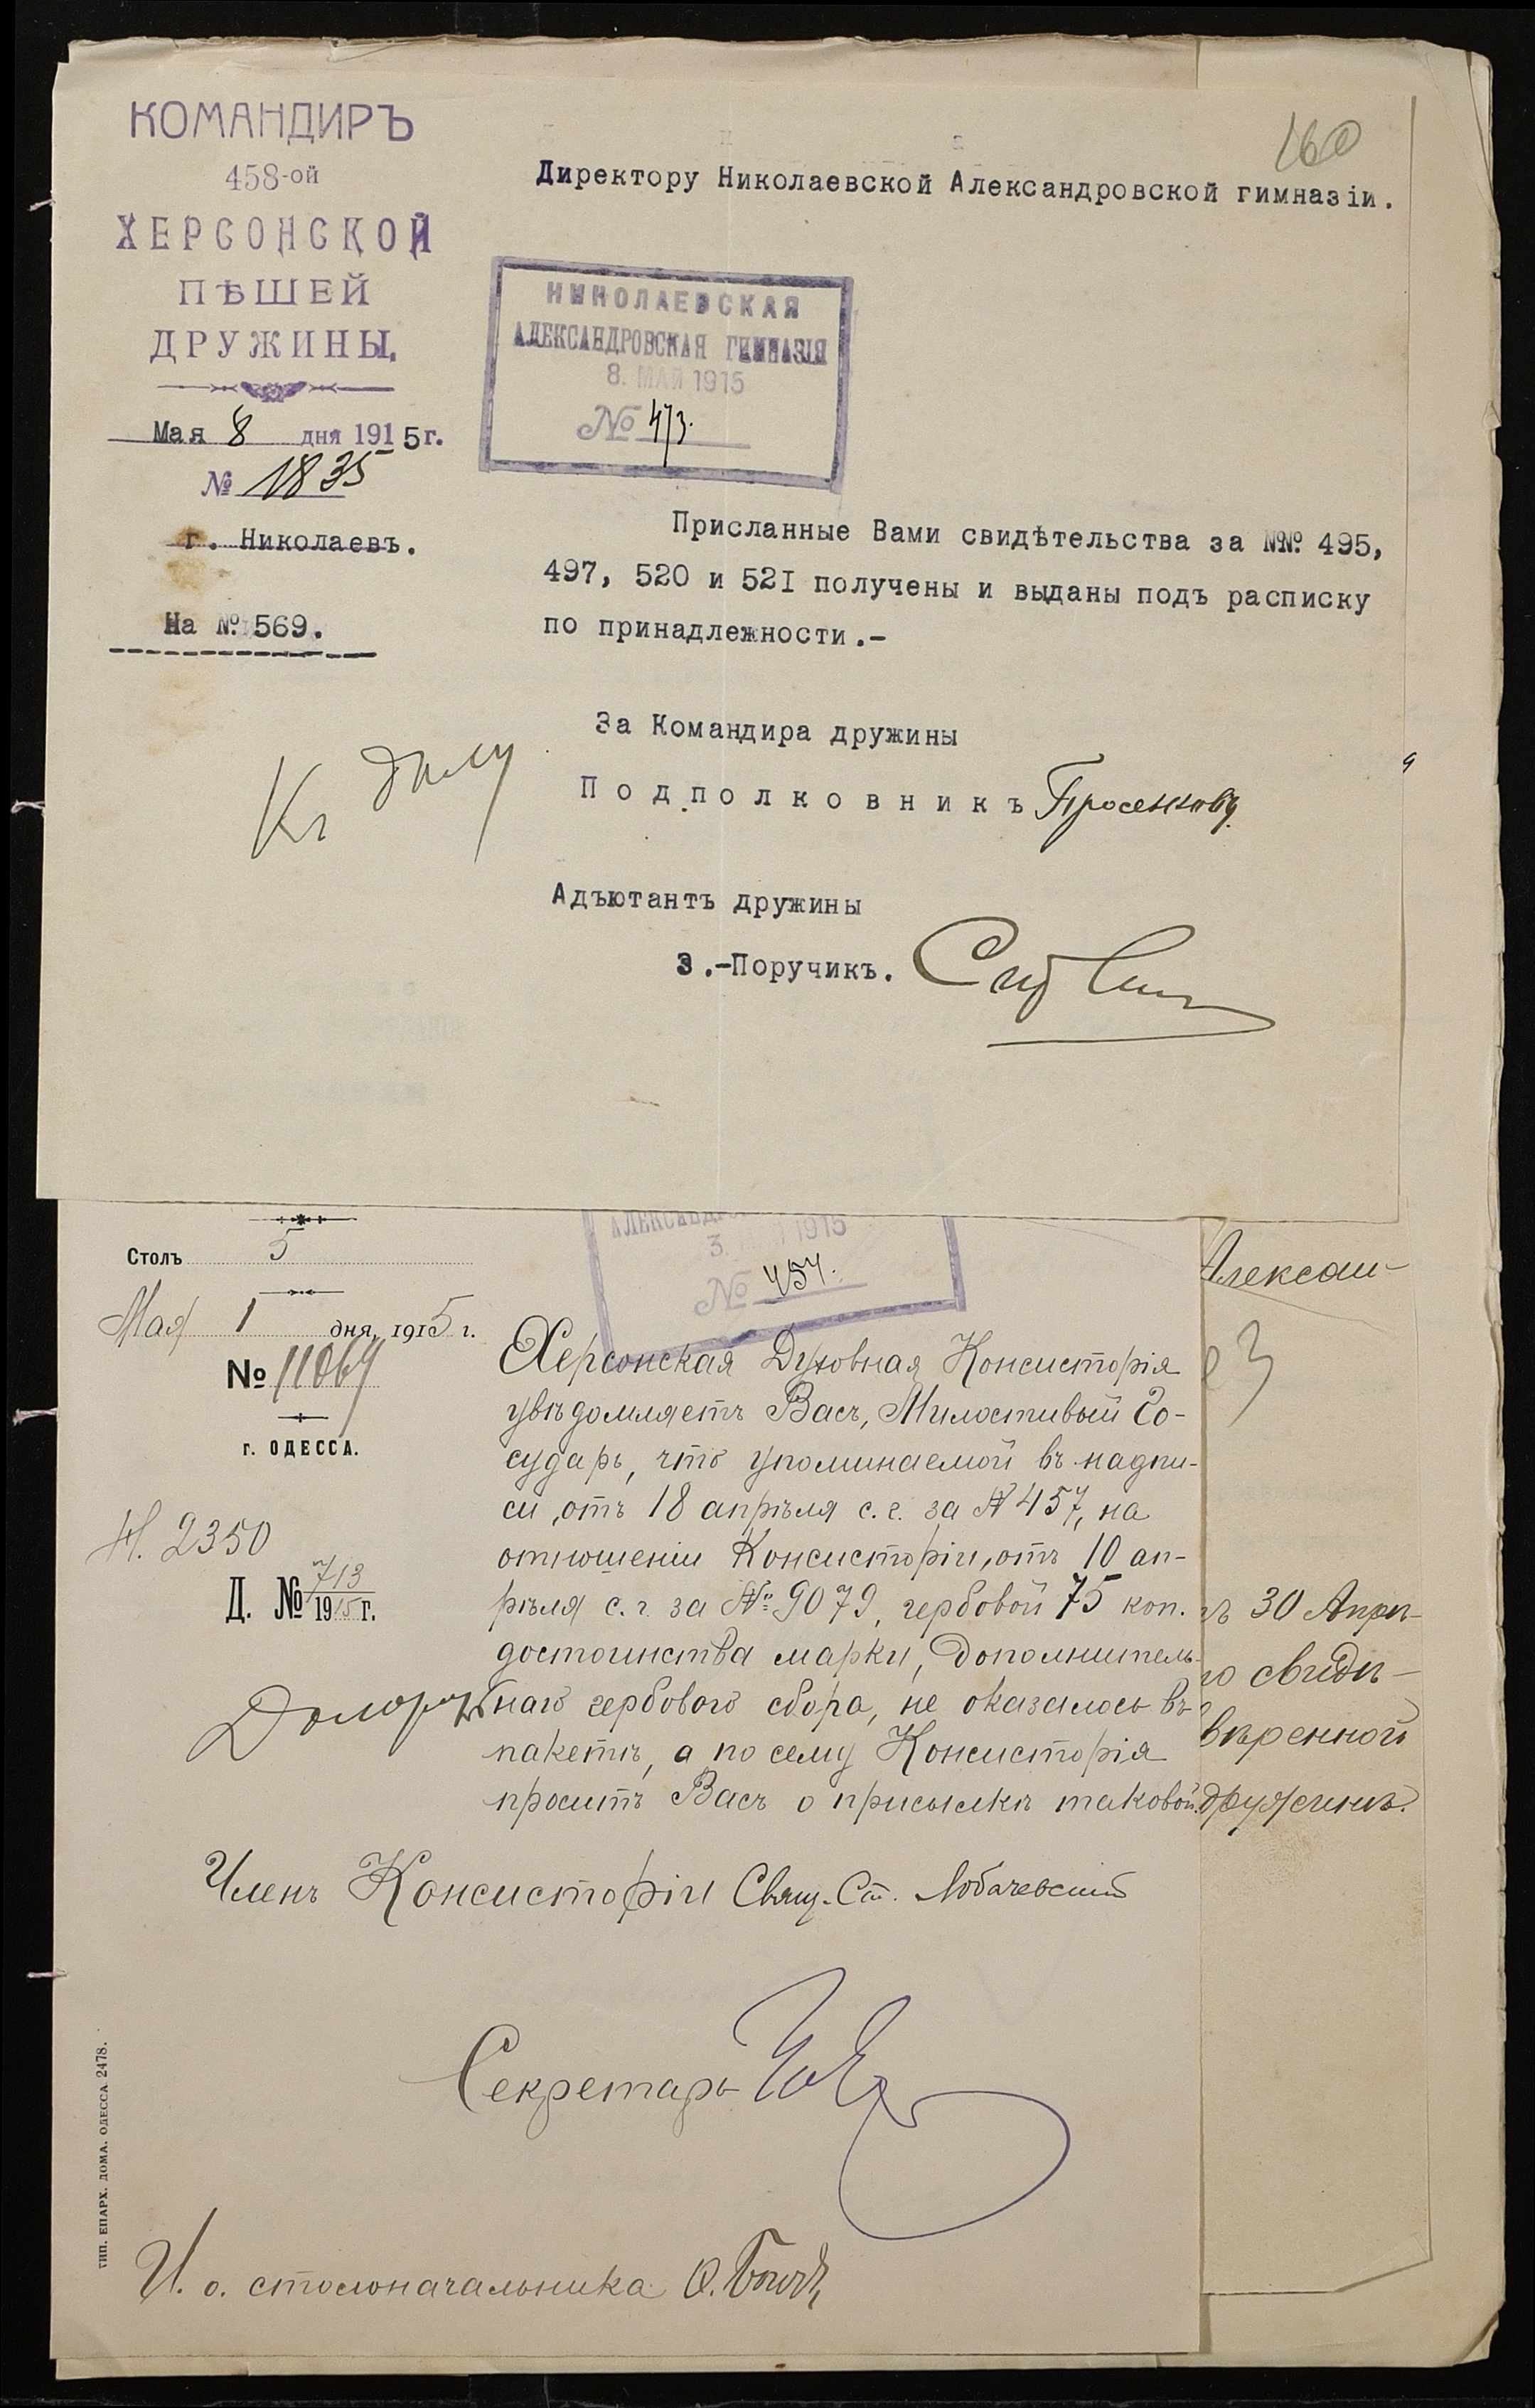 160
КОМАНДИРЪ
458-ой
ХЕРСОНСКОЙ
ПѢШЕЙ
ДРУЖИНЫ.
Мая 8 дня 1915 г.
№ 1835
г. Николаевъ.
На № 569.
Директору Николаевской Александровской гимназіи.
НИКОЛАЕВСКАЯ
АЛЕКСАНДРОВСКАЯ ГИМНАЗІЯ
8. МАЙ 1915
№ 473.
Присланные Вами свидѣтельства за №№ 495,
497, 520 и 521 получены и выданы подъ расписку
по принадлежности.-
За Командира дружины
Подполковникъ
Къ дѣлу
Адъютантъ дружины
З.-Поручикъ.
Столъ 5
Мая 1 дня, 1915 г.
№ 11069
г. ОДЕССА.
Н. 2350
Д. № 713
1915 г.
3. 1915
№ 454.
Херсонская Духовная Консисторія
увѣдомляетъ Васъ, Милостивый Го-
сударь, что упоминаемой въ надпи-
си, отъ 18 апрѣля с. г. за № 457, на
отношеніи Консисторіи, отъ 10 ап-
рѣля с. г. за № 9079, гербовой 75 коп.
достоинства марки, дополнитель-
наго гербового сбора, не оказалось въ
пакетѣ, а по сему Консисторія
проситъ Васъ о присылкѣ таковой.
Членъ Консисторіи Свящ. Ст. Лобачевскій
Секретарь
И. о. столоначальника
ТИП. ЕПАРХ. ДОМА. ОДЕССА 2478.
Алексан-
30 Апрѣ-
свидѣ-
ввѣренной
дружинѣ.